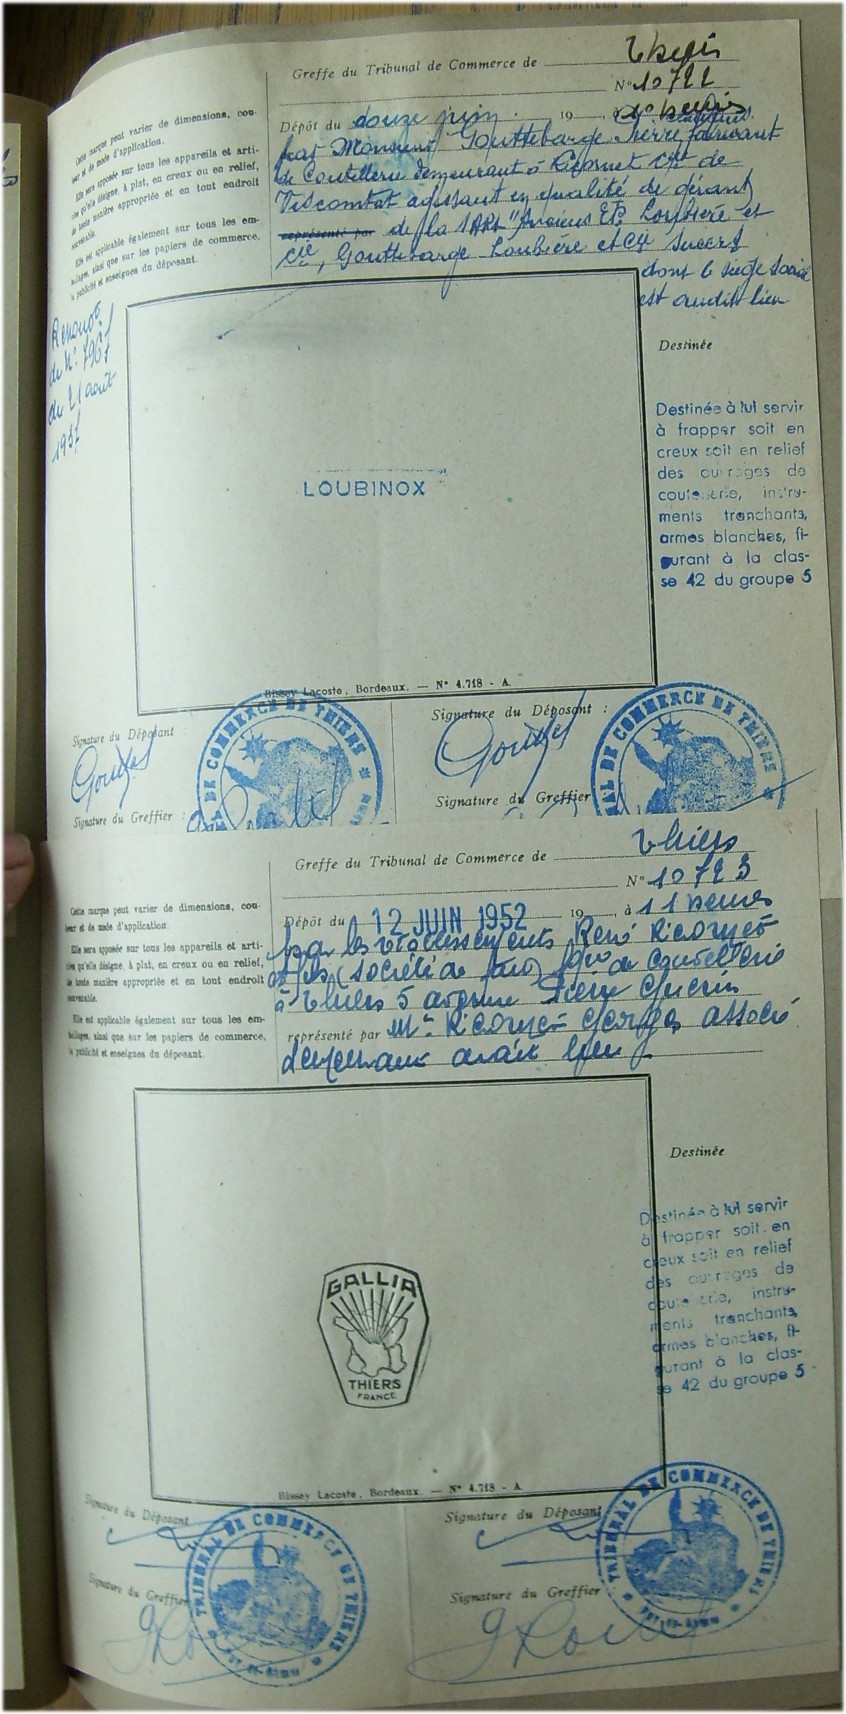 Greffe du Tribunal de Commerce de Thiers
N° 10722
Cette marque peut varier de dimensions, cou-
leur et de mode d'application.
Elle sera apposée sur tous les appareils et arti-
cles qu'elle désigne, à plat, en creux ou en relief,
de toute manière appropriée et en tout endroit
convenable.
Elle est applicable également sur tous les em-
ballages, ainsi que sur les papiers de commerce,
la publicité et enseignes du déposant.
Dépôt du douze juin 19 , à 10 heures
par Monsieur Gouttebarge Pierre fabricant
de Coutellerie demeurant à
Viscomtat agissant en qualité de gérant
représenté par de la SARL "Anciens Ets Loubière et
Cie, Gouttebarge Loubière et Cie Succrs
dont le siège social
est audit lieu
Renouvt
du N° 7961
du 21 août
1937
LOUBINOX
Destinée
Destinée à lui servir
à frapper soit en
creux soit en relief
des ouvrages de
coutellerie, instru-
ments tranchants,
armes blanches, fi-
gurant à la clas-
se 42 du groupe 5
Bissey Lacoste, Bordeaux. — N° 4.718 - A.
Signature du Déposant
Signature du Déposant :
Signature du Greffier :
Signature du Greffier
TRIBUNAL DE COMMERCE DE THIERS
Greffe du Tribunal de Commerce de Thiers
N° 10723
Cette marque peut varier de dimensions, cou-
leur et de mode d'application.
Elle sera apposée sur tous les appareils et arti-
cles qu'elle désigne à plat, en creux ou en relief,
de toute manière appropriée et en tout endroit
convenable.
Elle est applicable également sur tous les em-
ballages, ainsi que sur les papiers de commerce,
la publicité et enseignes du déposant.
Dépôt du 12 JUIN 1952 19 , à 11 heures
par les Etablissements René
et fils (société de fait) de coutellerie
à Thiers 5 avenue Pierre Guérin
représenté par Mr Georges associé
demeurant audit lieu
GALLIA
THIERS
FRANCE
Destinée
Destinée à lui servir
à frapper soit en
creux soit en relief
des ouvrages de
coutellerie, instru-
ments tranchants,
armes blanches, fi-
gurant à la clas-
se 42 du groupe 5
Bissey Lacoste, Bordeaux. — N° 4.718 - A.
Signature du Déposant
Signature du Déposant
Signature du Greffier
Signature du Greffier
TRIBUNAL DE COMMERCE DE THIERS
TRIBUNAL DE COMMERCE DE THIERS